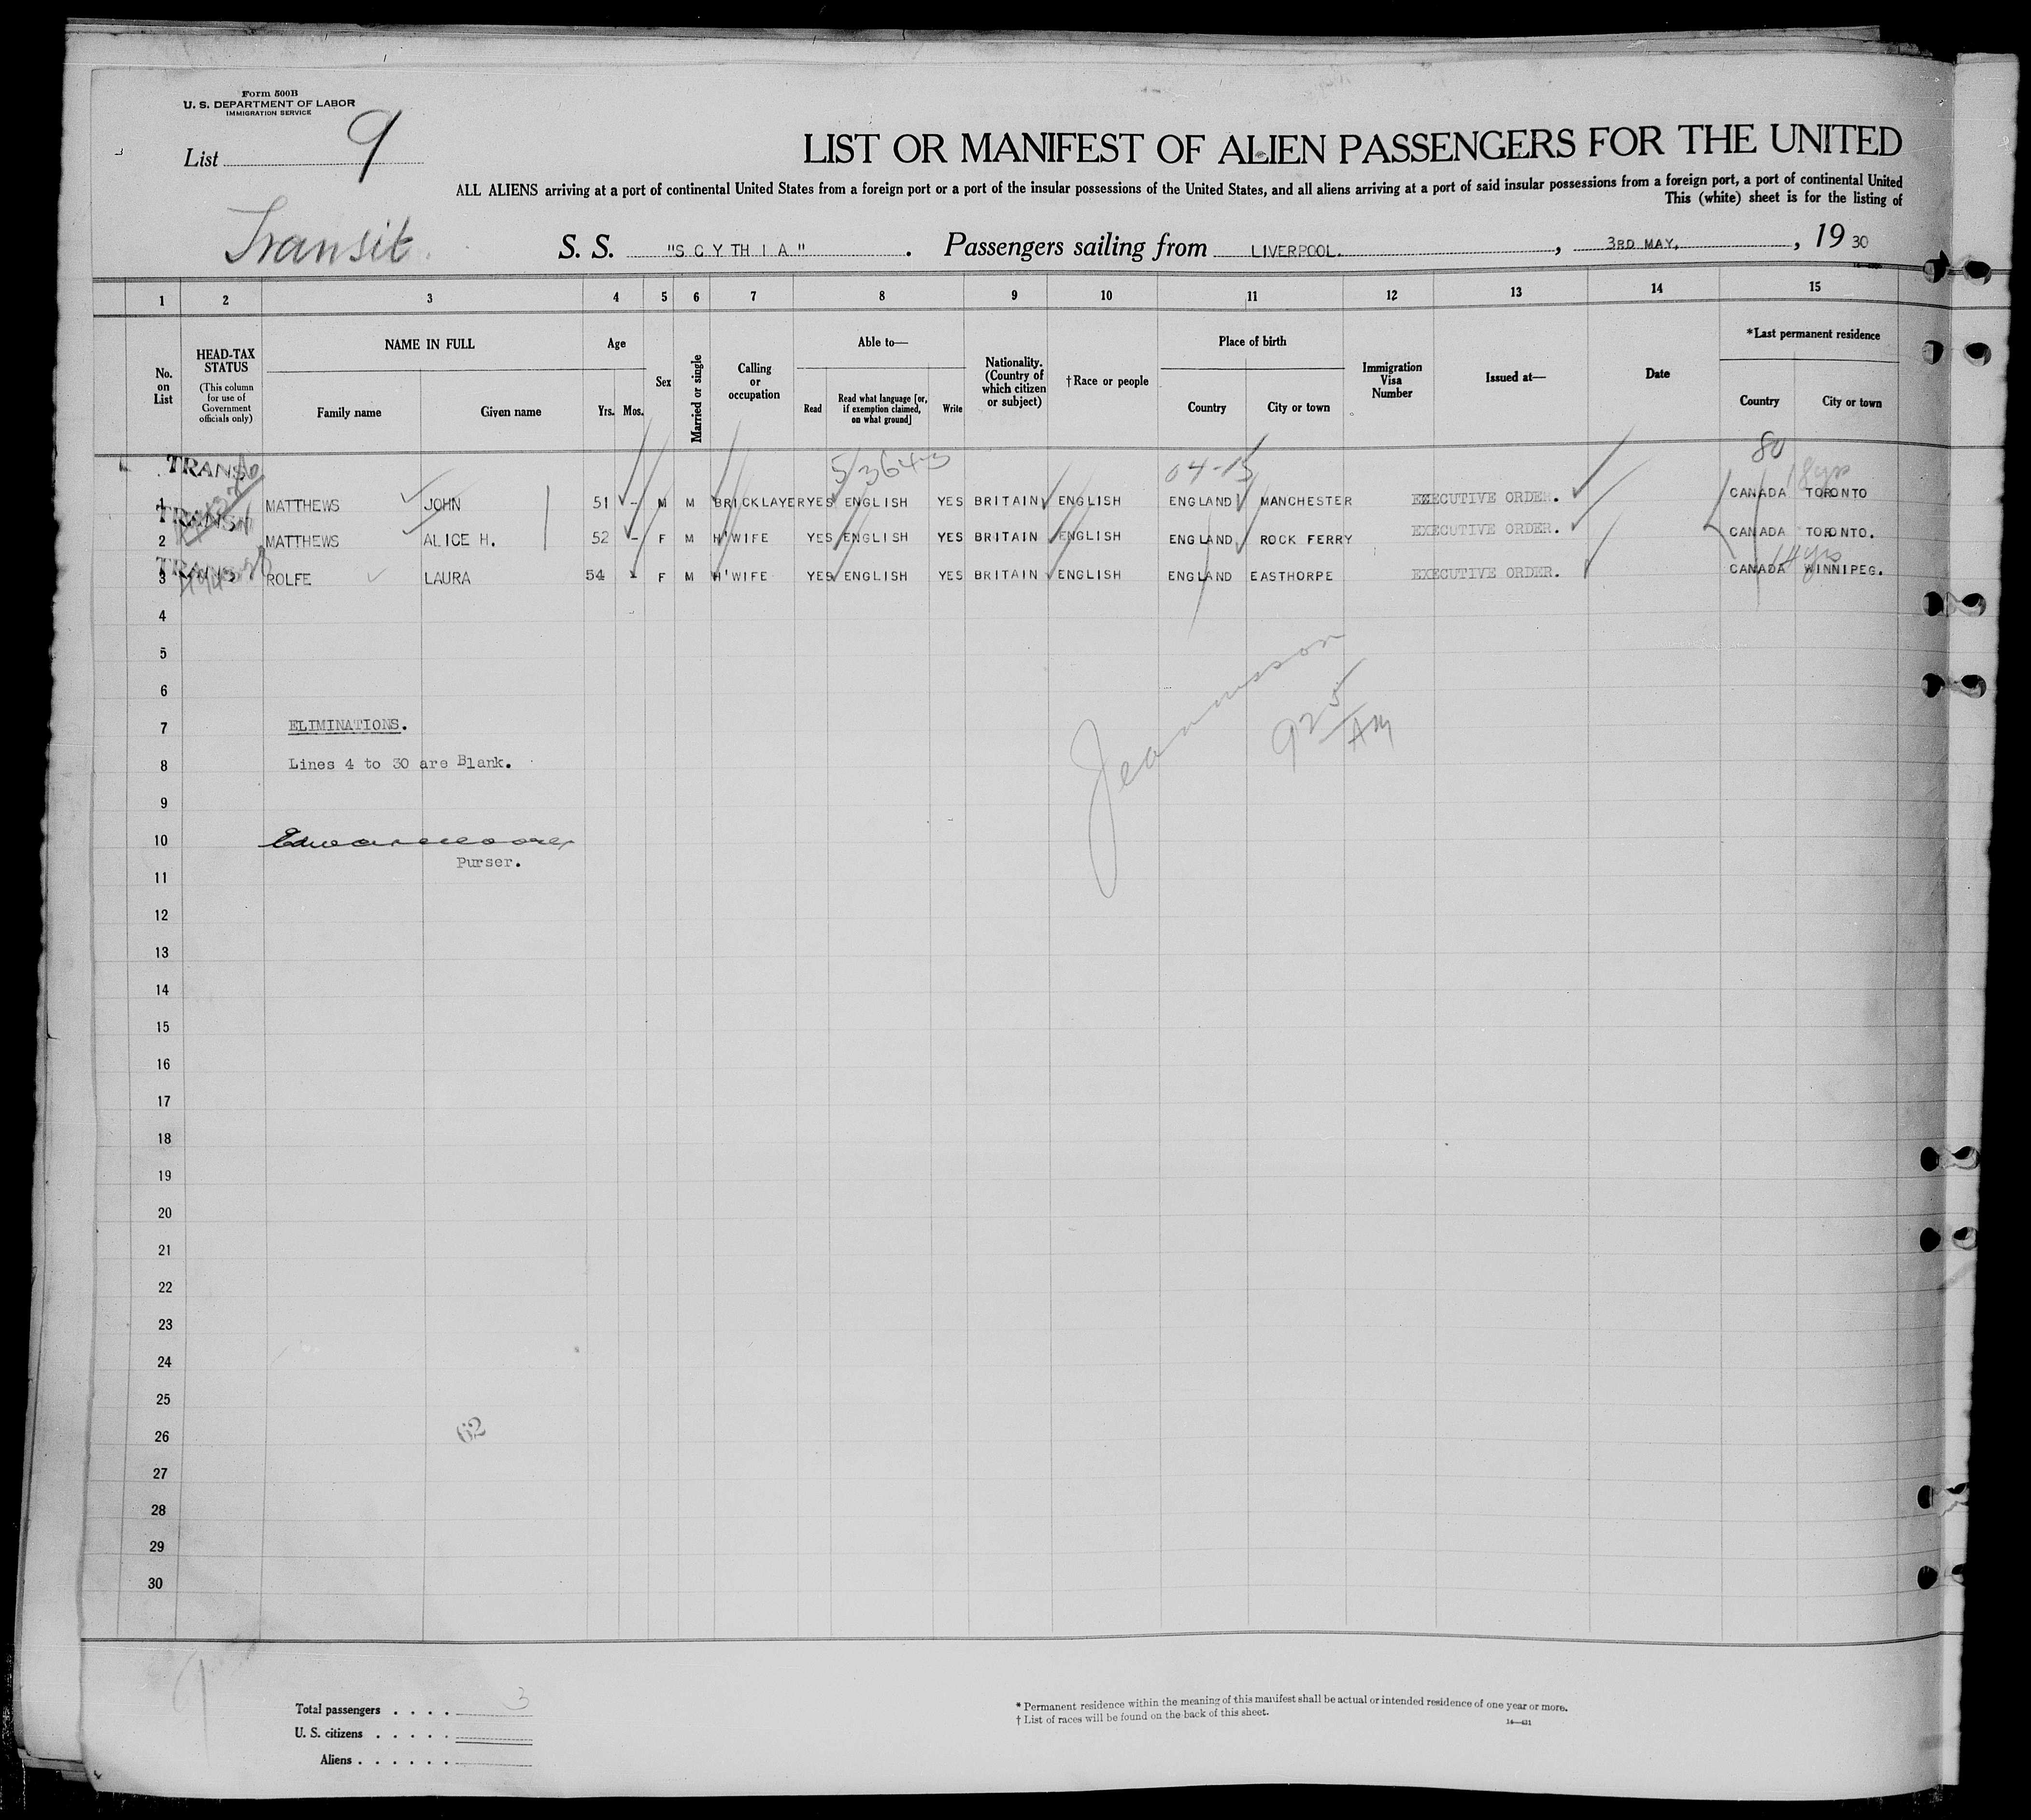 Form 500B
U. S. DEPARTMENT OF LABOR
IMMIGRATION SERVICE
List 9
LIST OR MANIFEST OF ALIEN PASSENGERS FOR THE UNITED
ALL ALIENS arriving at a port of continental United States from a foreign port or a port of the insular possessions of the United States, and all aliens arriving at a port of said insular possessions from a foreign port, a port of continental United
This (white) sheet is for the listing of
Transit
S. S. "SCYTHIA" . Passengers sailing from LIVERPOOL. , 3RD MAY, , 19 30
1 2 3 4 5 6 7 8 9 10 11 12 13 14 15
No. on List
HEAD-TAX STATUS (This column for use of Government officials only)
NAME IN FULL
Family name Given name
Age
Yrs. Mos.
Sex
Married or single
Calling or occupation
Able to—
Read Read what language [or, if exemption claimed, on what ground] Write
Nationality. (Country of which citizen or subject)
†Race or people
Place of birth
Country City or town
Immigration Visa Number
Issued at—
Date
*Last permanent residence
Country City or town
5/3643 04-15 80
TRANSIT 18yrs
1 MATTHEWS JOHN 51 - M M BRICKLAYER YES ENGLISH YES BRITAIN ENGLISH ENGLAND MANCHESTER EXECUTIVE ORDER. CANADA TORONTO
TRANSIT
2 MATTHEWS ALICE H. 52 - F M H'WIFE YES ENGLISH YES BRITAIN ENGLISH ENGLAND ROCK FERRY EXECUTIVE ORDER. CANADA TORONTO.
TRANSIT 14yrs
3 ROLFE LAURA 54 - F M H'WIFE YES ENGLISH YES BRITAIN ENGLISH ENGLAND EASTHORPE EXECUTIVE ORDER. CANADA WINNIPEG.
4
5
6
7 ELIMINATIONS.
8 Lines 4 to 30 are Blank.
925
AM
9
10
Purser.
11
12
13
14
15
16
17
18
19
20
21
22
23
24
25
26
62
27
28
29
30
9
Total passengers . . . . 3
U. S. citizens . . . . .
Aliens . . . . . .
* Permanent residence within the meaning of this manifest shall be actual or intended residence of one year or more.
† List of races will be found on the back of this sheet.